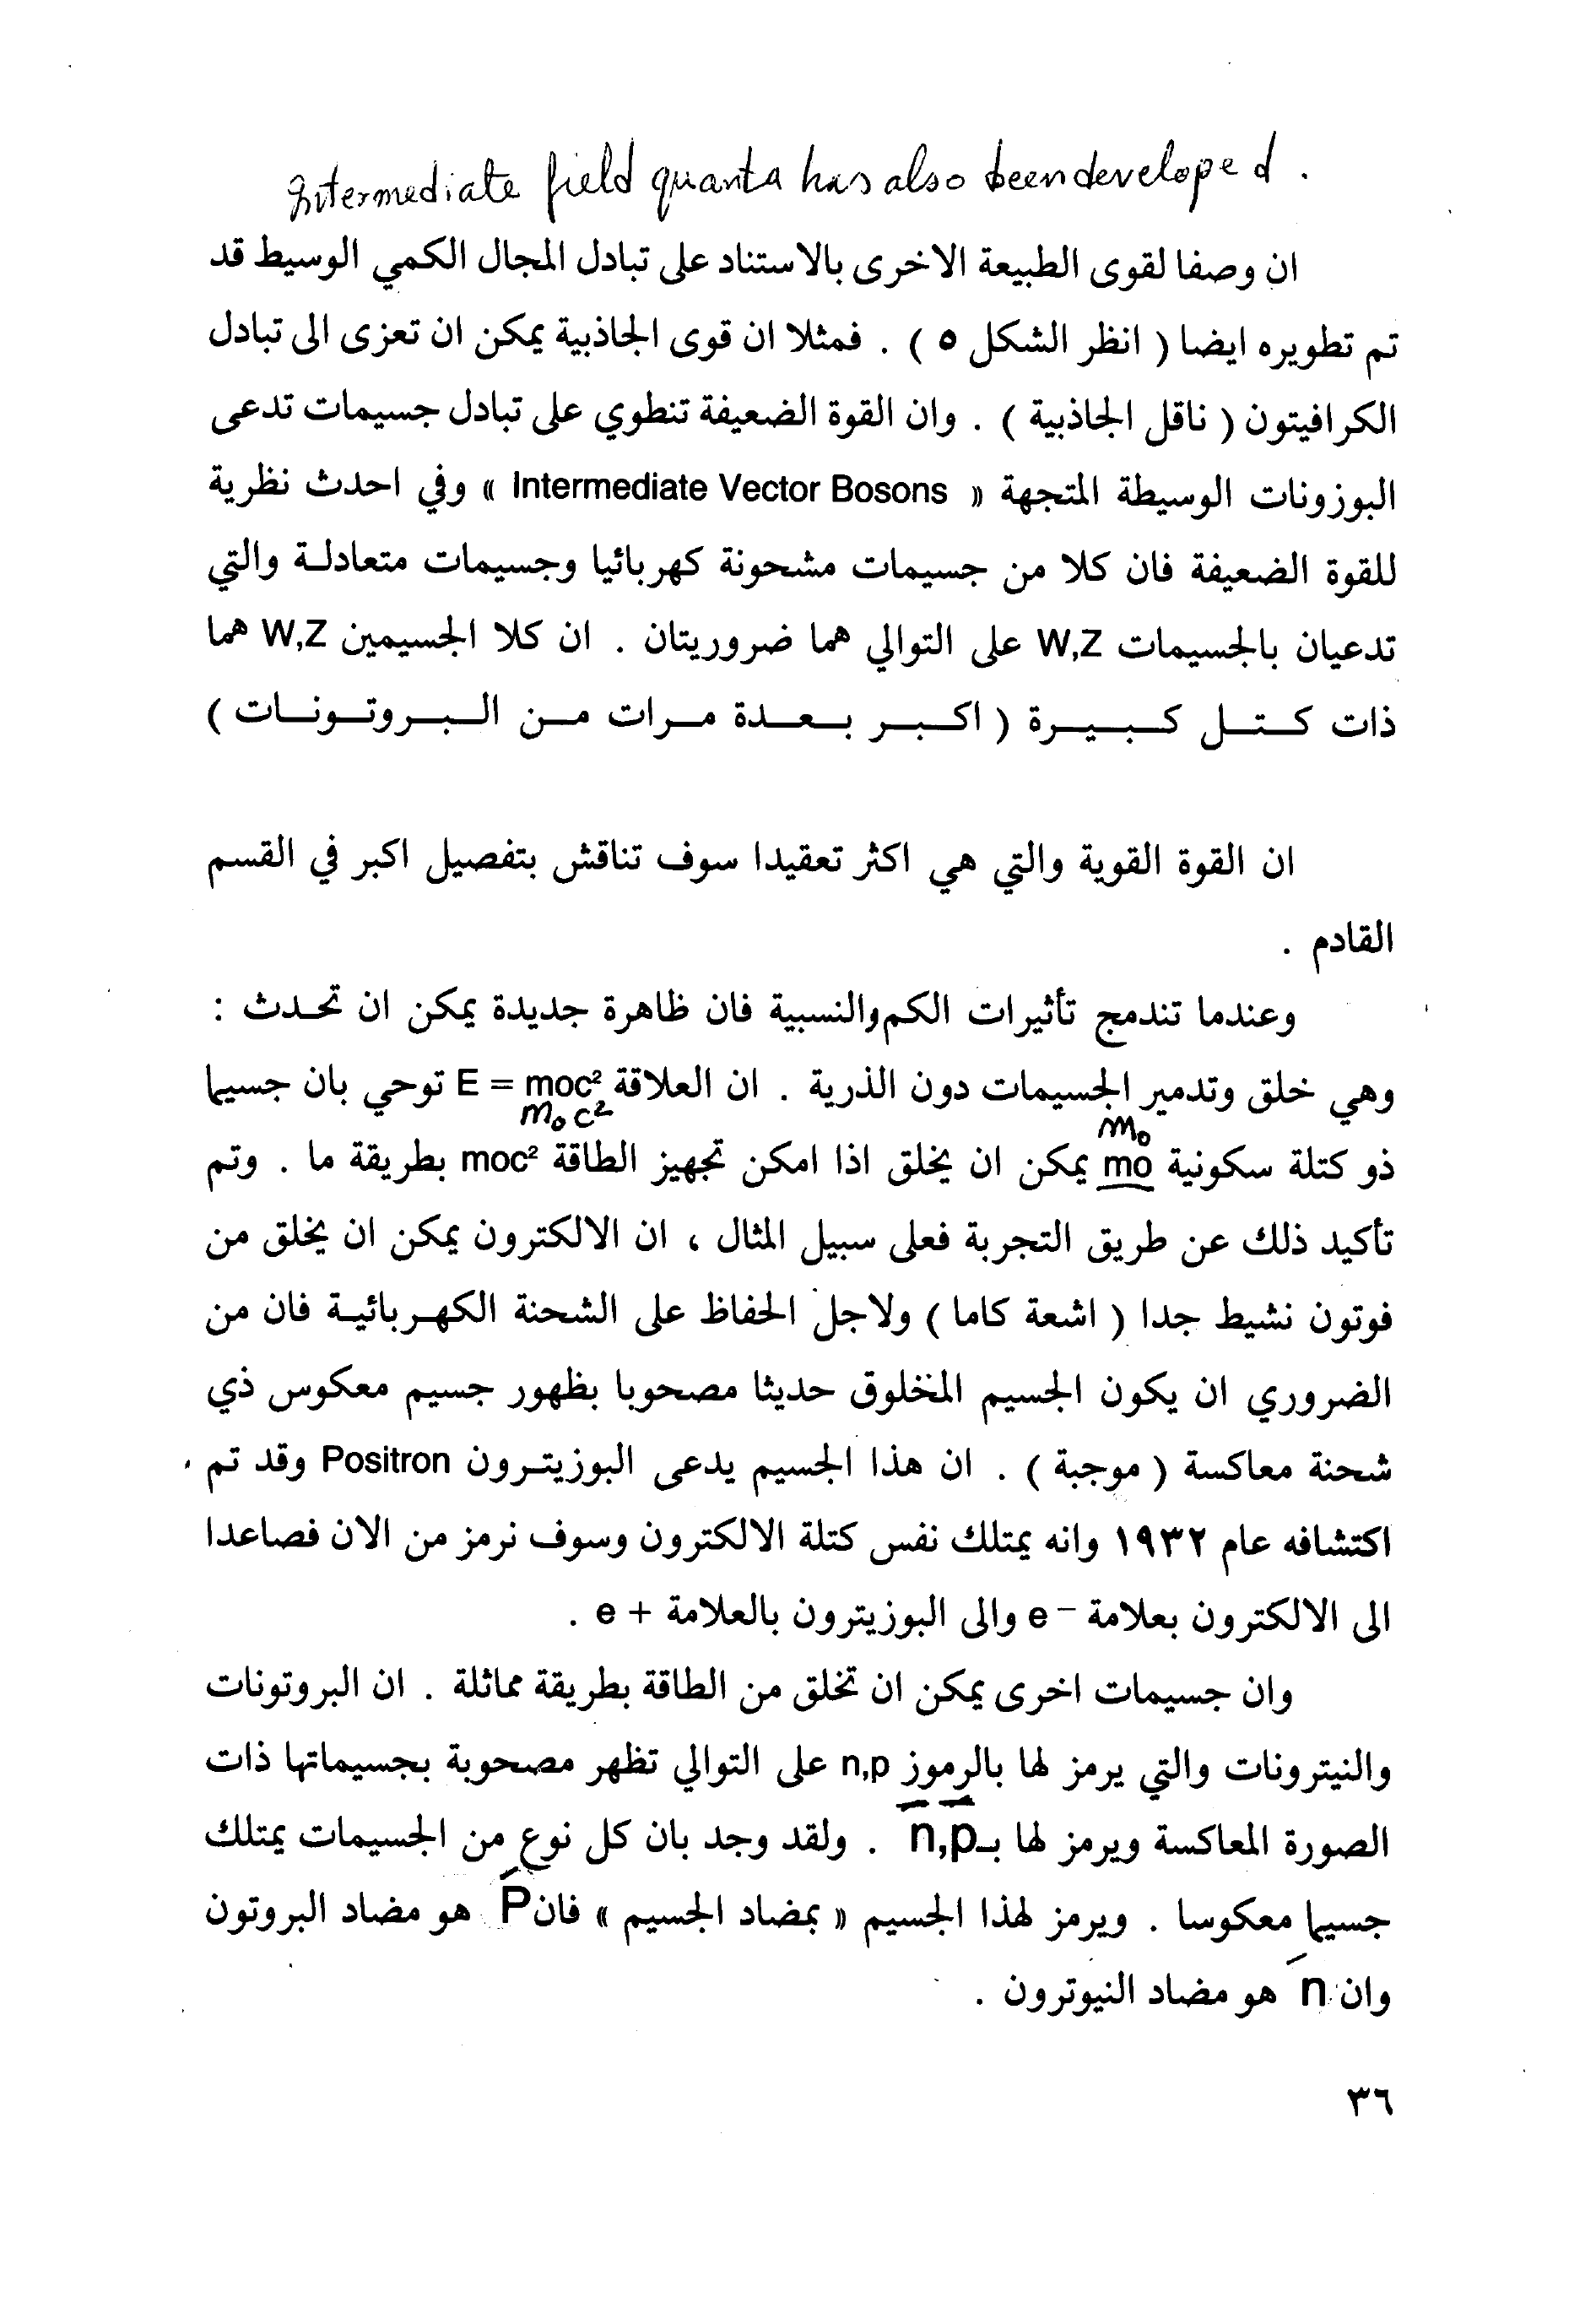 Intermediate field quanta has also been developed.
ان وصفا لقوى الطبيعة الاخرى بالاستناد على تبادل المجال الكمي الوسيط قد
تم تطويره ايضا ( انظر الشكل ٥ ) . فمثلا ان قوى الجاذبية يمكن ان تعزى الى تبادل
الكرافيتون ( ناقل الجاذبية ) . وان القوة الضعيفة تنطوي على تبادل جسيمات تدعى
البوزونات الوسيطة المتجهة « Intermediate Vector Bosons » وفي احدث نظرية
للقوة الضعيفة فان كلا من جسيمات مشحونة كهربائيا وجسيمات متعادلة والتي
تدعيان بالجسيمات W,Z على التوالي هما ضروريتان . ان كلا الجسيمين W,Z هما
ذات كتل كبيرة ( اكبر بعدة مرات من البروتونات )
ان القوة القوية والتي هي اكثر تعقيدا سوف تناقش بتفصيل اكبر في القسم
القادم .
وعندما تندمج تأثيرات الكم والنسبية فان ظاهرة جديدة يمكن ان تحدث :
وهي خلق وتدمير الجسيمات دون الذرية . ان العلاقة E = moc² توحي بان جسيما
m₀c²
m₀
ذو كتلة سكونية mo يمكن ان يخلق اذا امكن تجهيز الطاقة moc² بطريقة ما . وتم
تأكيد ذلك عن طريق التجربة فعلى سبيل المثال ، ان الالكترون يمكن ان يخلق من
فوتون نشيط جدا ( اشعة كاما ) ولاجل الحفاظ على الشحنة الكهربائية فان من
الضروري ان يكون الجسيم المخلوق حديثا مصحوبا بظهور جسيم معكوس ذي
شحنة معاكسة ( موجبة ) . ان هذا الجسيم يدعى البوزيترون Positron وقد تم
اكتشافه عام ١٩٣٢ وانه يمتلك نفس كتلة الالكترون وسوف نرمز من الان فصاعدا
الى الالكترون بعلامة e − والى البوزيترون بالعلامة e + .
وان جسيمات اخرى يمكن ان تخلق من الطاقة بطريقة مماثلة . ان البروتونات
والنيترونات والتي يرمز لها بالرموز n,p على التوالي تظهر مصحوبة بجسيماتها ذات
الصورة المعاكسة ويرمز لها بـ n̄,p̄ . ولقد وجد بان كل نوع من الجسيمات يمتلك
جسيما معكوسا . ويرمز لهذا الجسيم « بمضاد الجسيم » فان P̄ هو مضاد البروتون
وان n̄ هو مضاد النيوترون .
٣٦